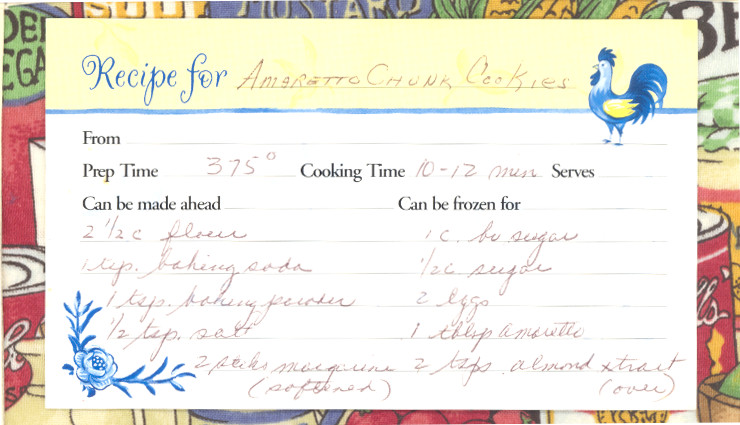 MUSTARD
Recipe for AMARETTO CHUNK COOKIES
From
Prep Time 375° Cooking Time 10-12 min Serves
Can be made ahead Can be frozen for
2 1/2 c flour 1 c. br sugar
1 tsp. baking soda 1/2 c sugar
1 tsp. baking powder 2 eggs
1/2 tsp. salt 1 tblsp amaretto
2 sticks margarine 2 tsps. almond xtract
(softened) (over)